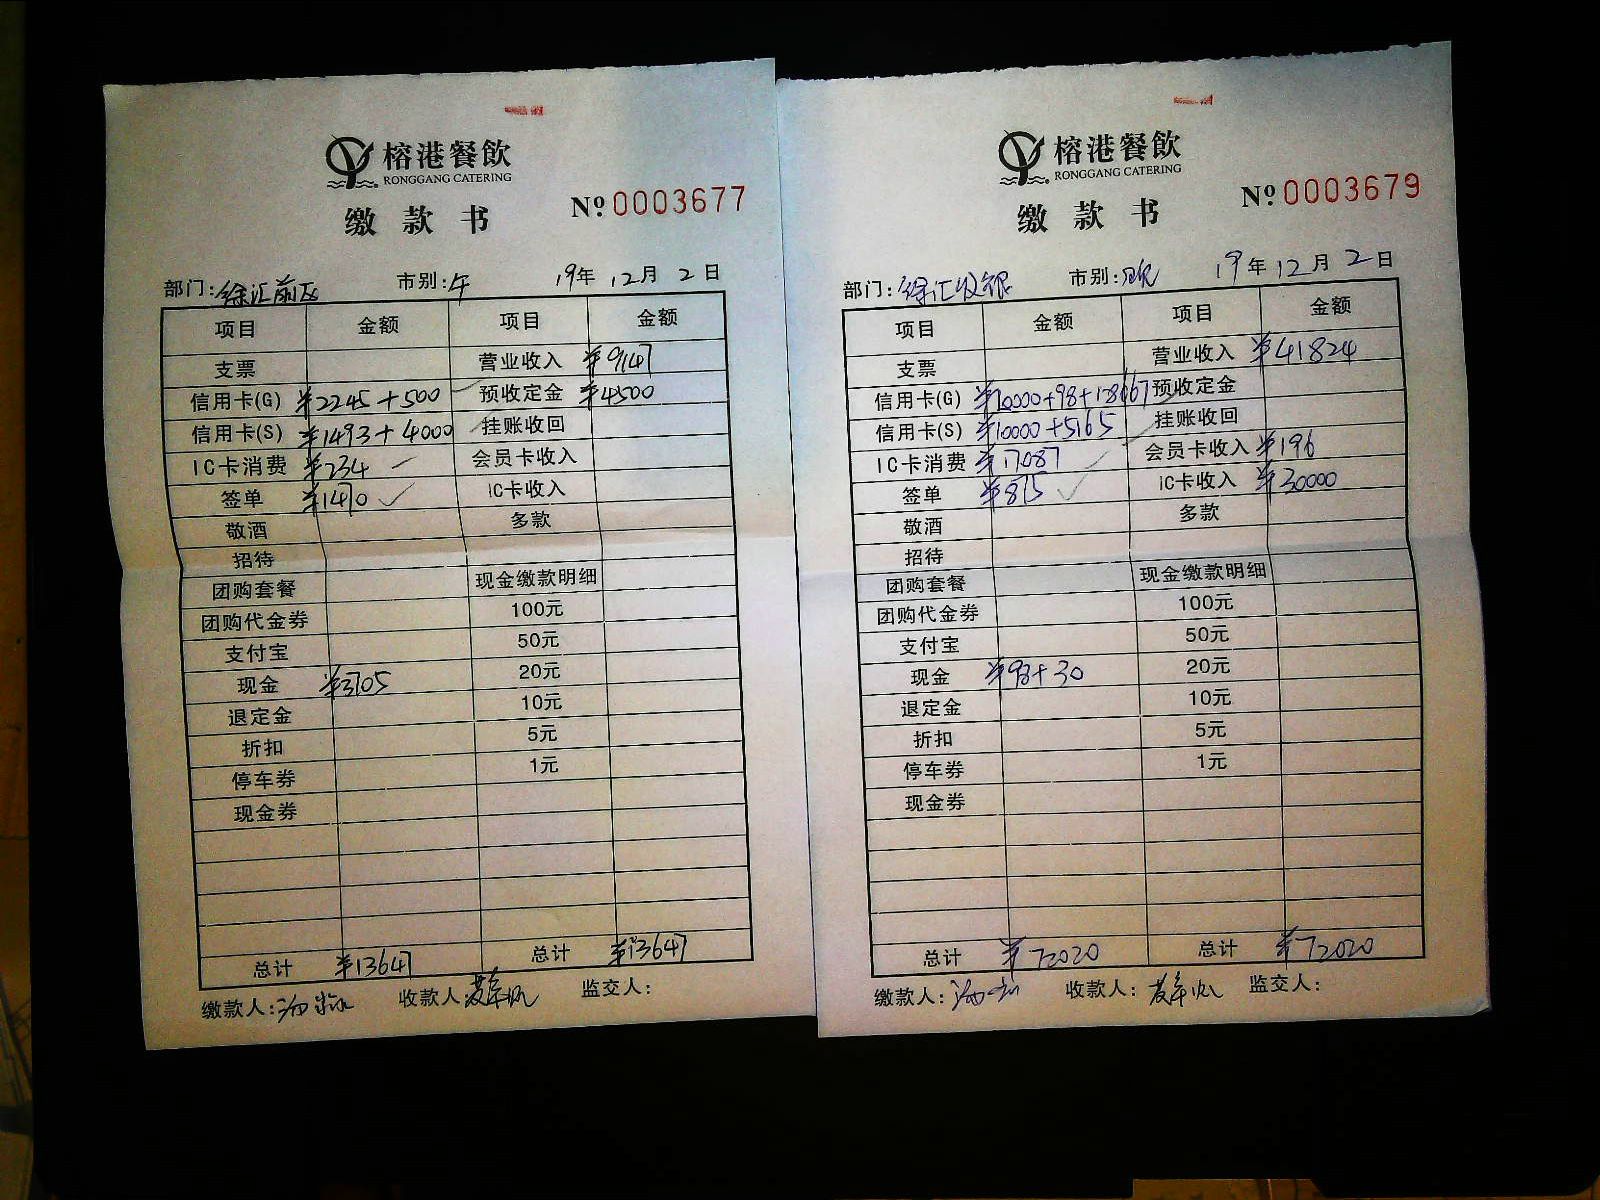 榕港餐飲
RONGGANG CATERING
缴款书
Nº 0003677
部门:徐汇前区 市别:午 19年12月2日
项目 金额 项目 金额
支票 营业收入 ¥9147
信用卡(G) ¥2245+500 预收定金 ¥4500
信用卡(S) ¥1493+4000 挂账收回
IC卡消费 ¥234 会员卡收入
签单 ¥1470 IC卡收入
敬酒 多款
招待
团购套餐 现金缴款明细
团购代金券 100元
支付宝 50元
现金 ¥3705 20元
退定金 10元
折扣 5元
停车券 1元
现金券
总计 ¥13647 总计 ¥13647
缴款人: 收款人 监交人:
榕港餐飲
RONGGANG CATERING
缴款书
Nº 0003679
部门:徐汇收银 市别:晚 19年12月2日
项目 金额 项目 金额
支票 营业收入 ¥41824
信用卡(G) 预收定金
信用卡(S) ¥10000+5165 挂账收回
IC卡消费 ¥17087 会员卡收入 ¥196
签单 ¥875 IC卡收入 ¥30000
敬酒 多款
招待
团购套餐 现金缴款明细
团购代金券 100元
支付宝 50元
现金 ¥98+30 20元
退定金 10元
折扣 5元
停车券 1元
现金券
总计 ¥72020 总计 ¥72020
缴款人: 收款人: 监交人: